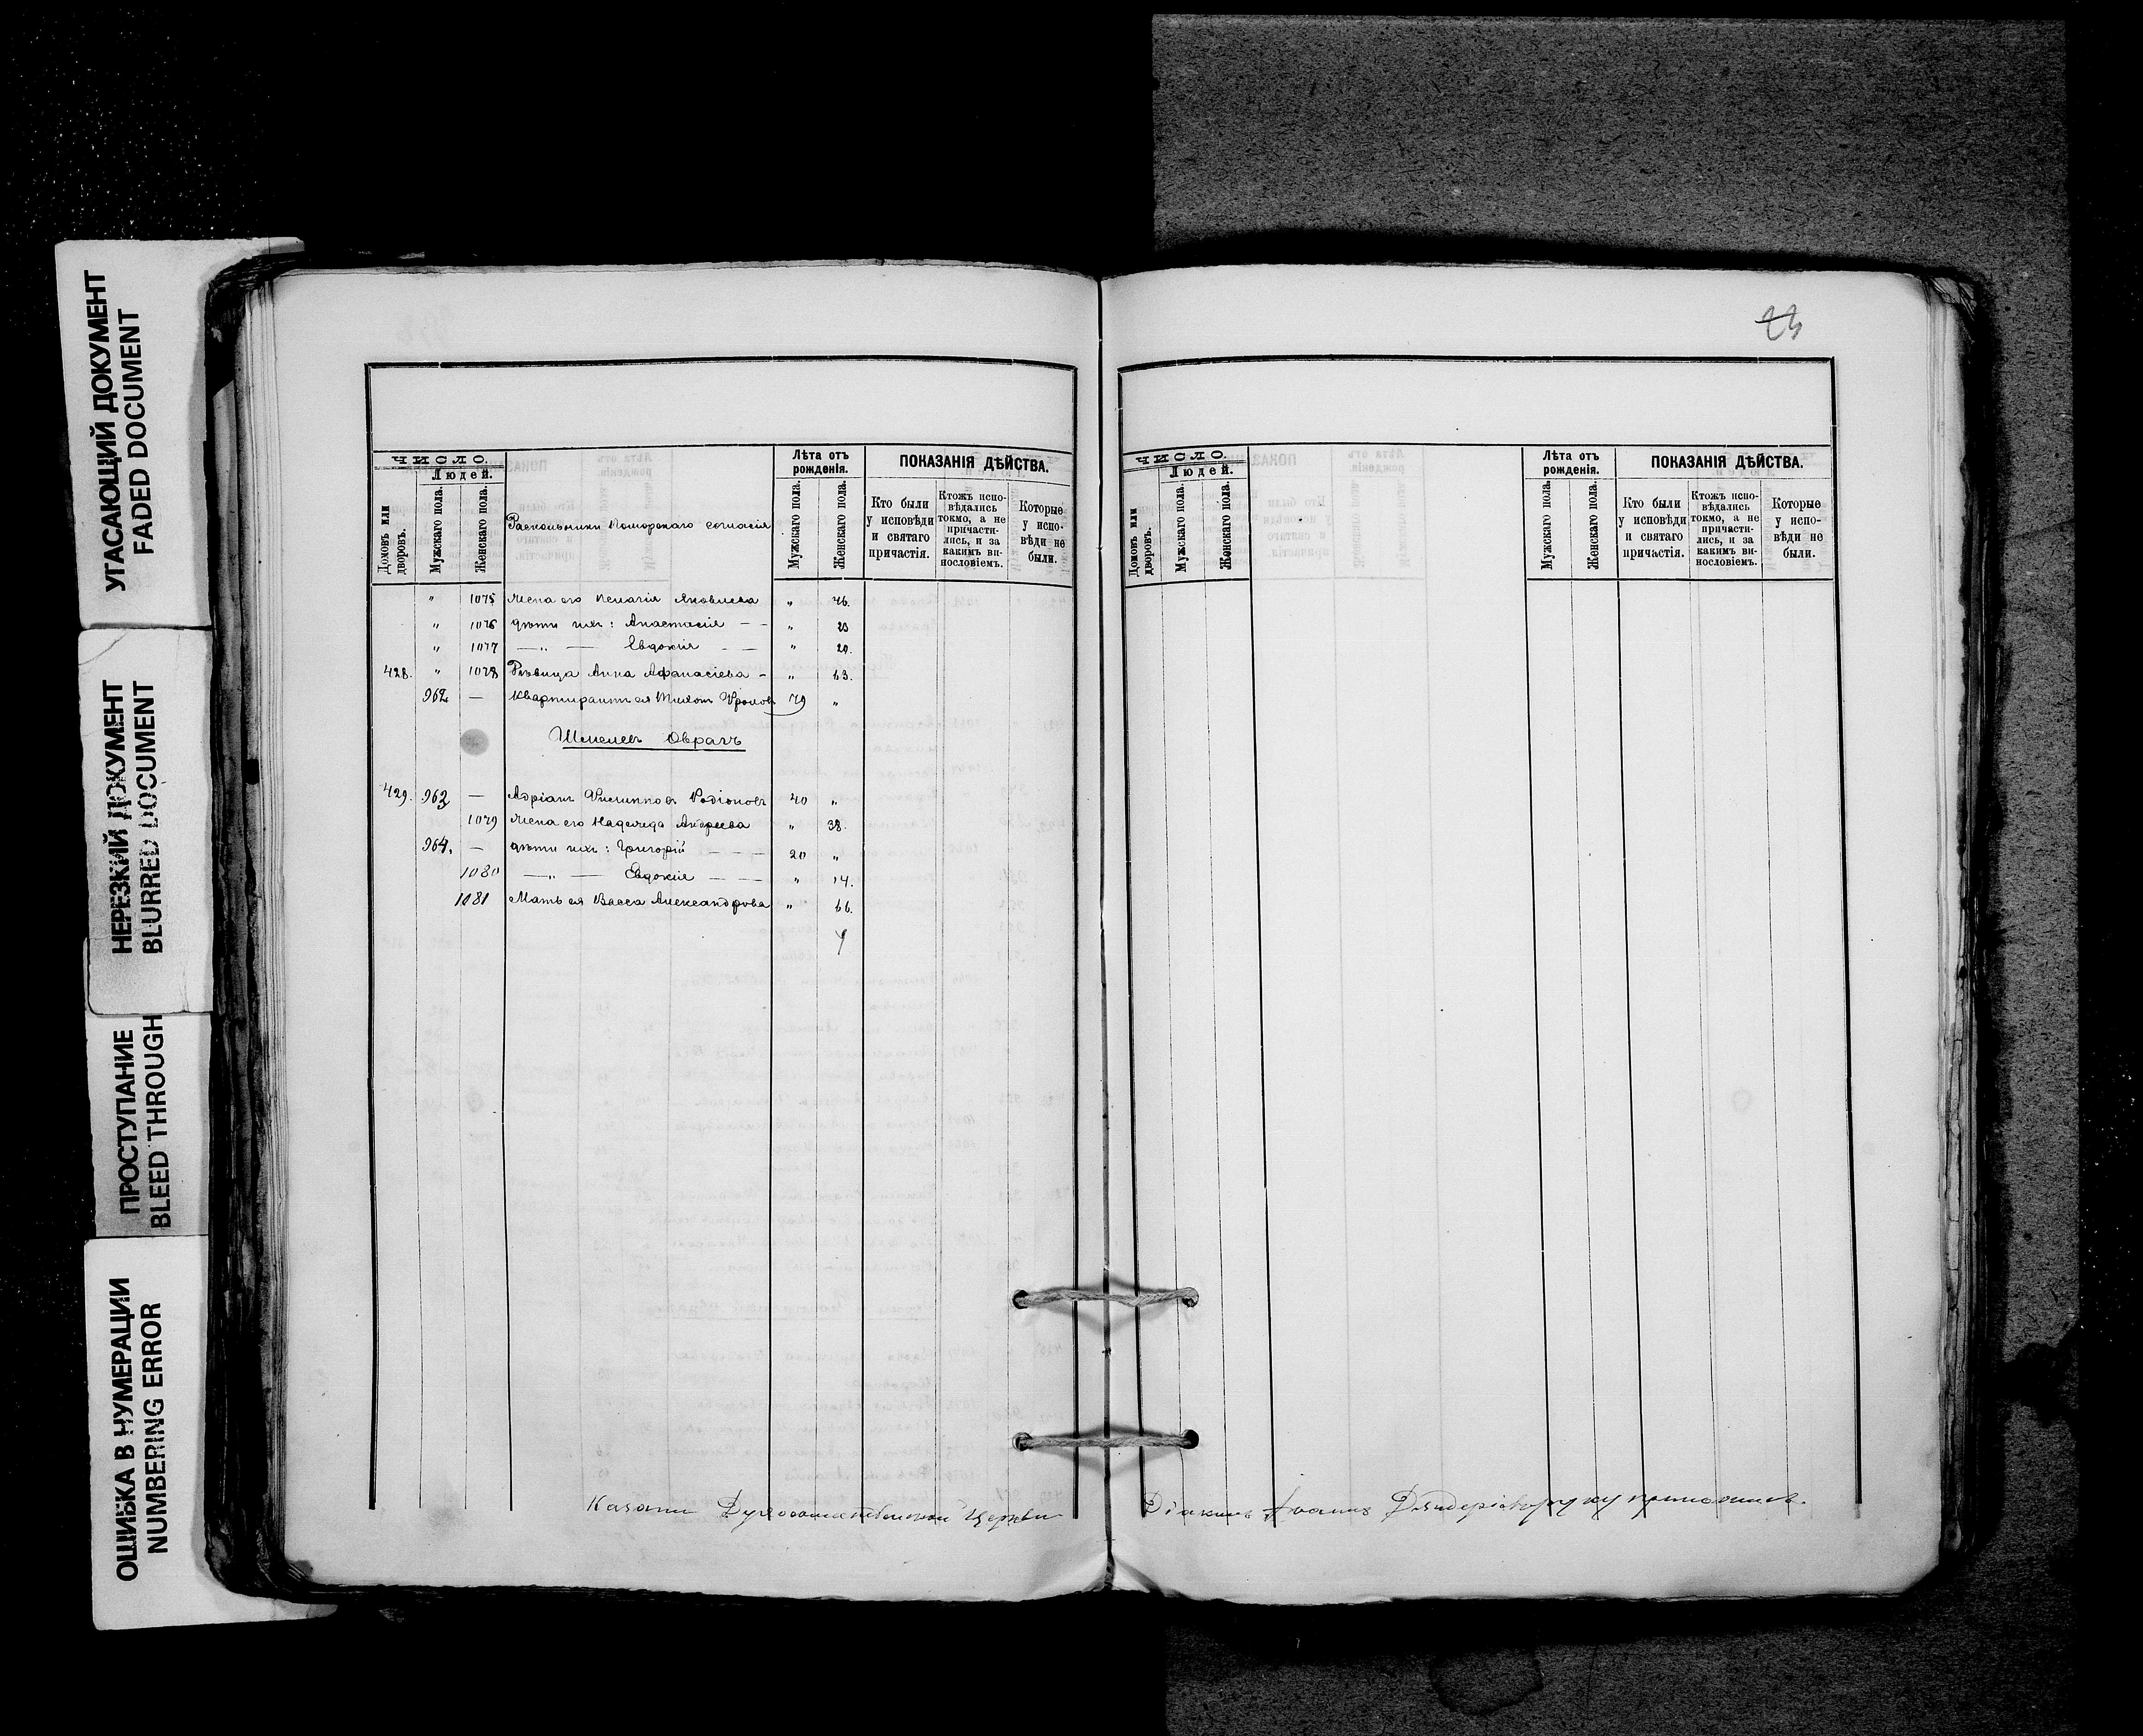 УГАСАЮЩИЙ ДОКУМЕНТ
FADED DOCUMENT
НЕРЕЗКИЙ ДОКУМЕНТ
BLURRED DOCUMENT
ПРОСТУПАНИЕ
BLEED THROUGH
ОШИБКА В НУМЕРАЦИИ
NUMBERING ERROR
ЧИСЛО.
Людей.
Домовъ или дворовъ.
Мужскаго пола.
Женскаго пола.
Раскольники Поморскаго согласія
Лѣта отъ рожденія.
Мужскаго пола.
Женскаго пола.
ПОКАЗАНІЯ ДѢЙСТВА.
Кто были у исповѣди и святаго причастія.
Ктожъ исповѣдались токмо, а не причастились, и за какимъ винословіемъ.
Которые у исповѣди не были.
" 1075 Жена его Пелагія Яковлева " 46.
" 1076 дѣти ихъ: Анастасія — — " 23
" 1077 — " — Евдокія — — " 20.
428. " 1078 Рѣвица Анна Афанасіева — " 63.
962 — Квартирантъ ея Тихонъ Фроловъ 79 "
Шмелевъ Оврагъ
429. 963 — Адріанъ Филипповъ Родіоновъ 40 "
1079 Жена его Надежда Андреева " 38.
964. — дѣти ихъ: Григорій — — — 20 "
1080 — " — Евдокія — — " 14.
1081 Мать ея Васса Александрова " 66.
Казани Духосошественской Церкви
23
ЧИСЛО.
Людей.
Домовъ или дворовъ.
Мужскаго пола.
Женскаго пола.
Лѣта отъ рожденія.
Мужскаго пола.
Женскаго пола.
ПОКАЗАНІЯ ДѢЙСТВА.
Кто были у исповѣди и святаго причастія.
Ктожъ исповѣдались токмо, а не причастились, и за какимъ винословіемъ.
Которые у исповѣди не были.
Діаконъ Іоаннъ